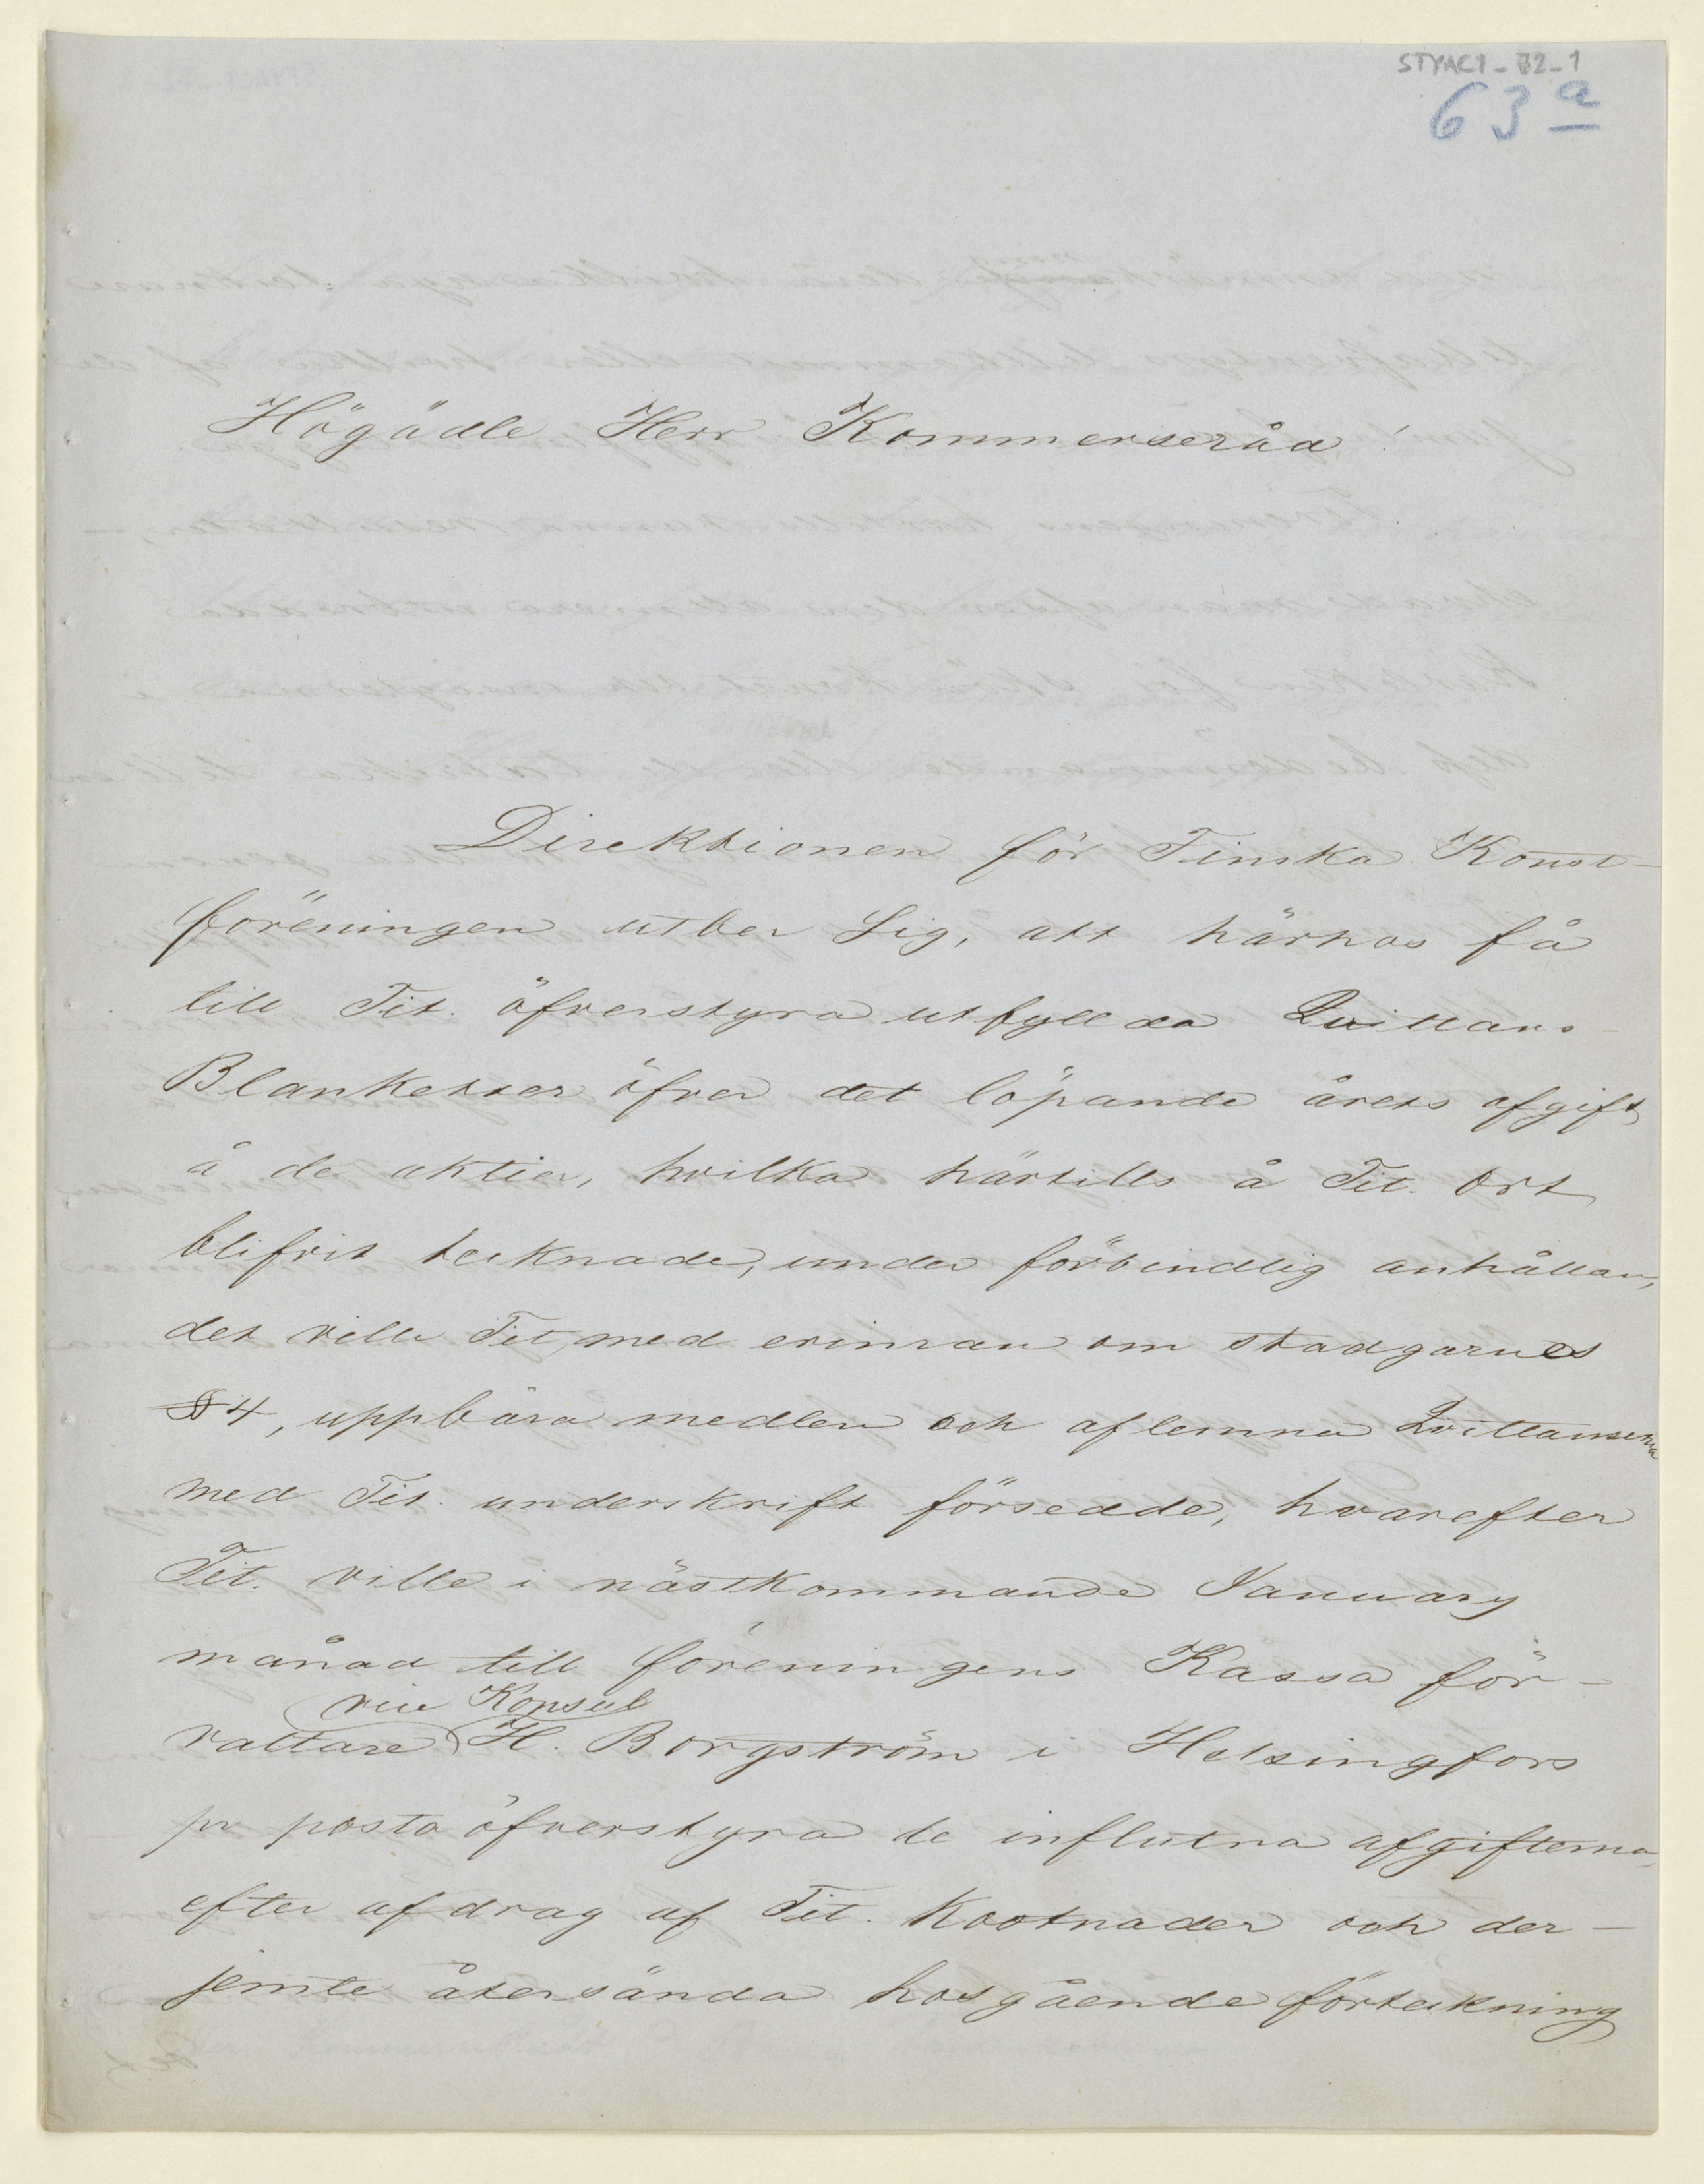 STYAC1-72-1
63 a
Högädle Herr Kommerseråd!
Direktionen för Finska Konst-
föreningen utber Sig, att härhos få
till Tit. öfverstyra utfyllda Qvittans-
Blanketter öfver det löpande årets afgift
å de aktier, hvilka härtills å Tit. Ort
blifvit tecknade, under förbindlig anhållan,
det ville Tit, med erinran om stadgarnes
§ 4, uppbära medlen och aflemna Qvittanserna
med Tit. underskrift försedde, hvarefter
Tit. ville i nästkommande January
månad till föreningens Kassa för-
vice Konsul
valtare H. Borgström i Helsingfors
pr posto öfverstyra de influtna afgifterna,
efter afdrag af Tit. kostnader och der-
jemte återsända hosgående förteckning